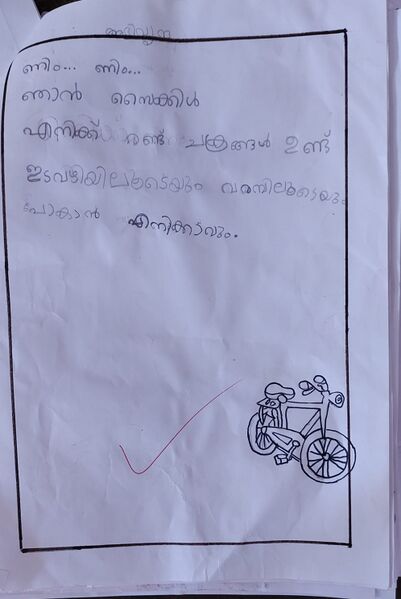 ണിം... ണിം...
ഞാൻ സൈക്കിൾ
എനിക്ക് രണ്ട് ചക്രങ്ങൾ ഉണ്ട്
ഇടവഴിയിലൂടെയും വരമ്പിലൂടെയും
പോകാൻ എനിക്കാവും.